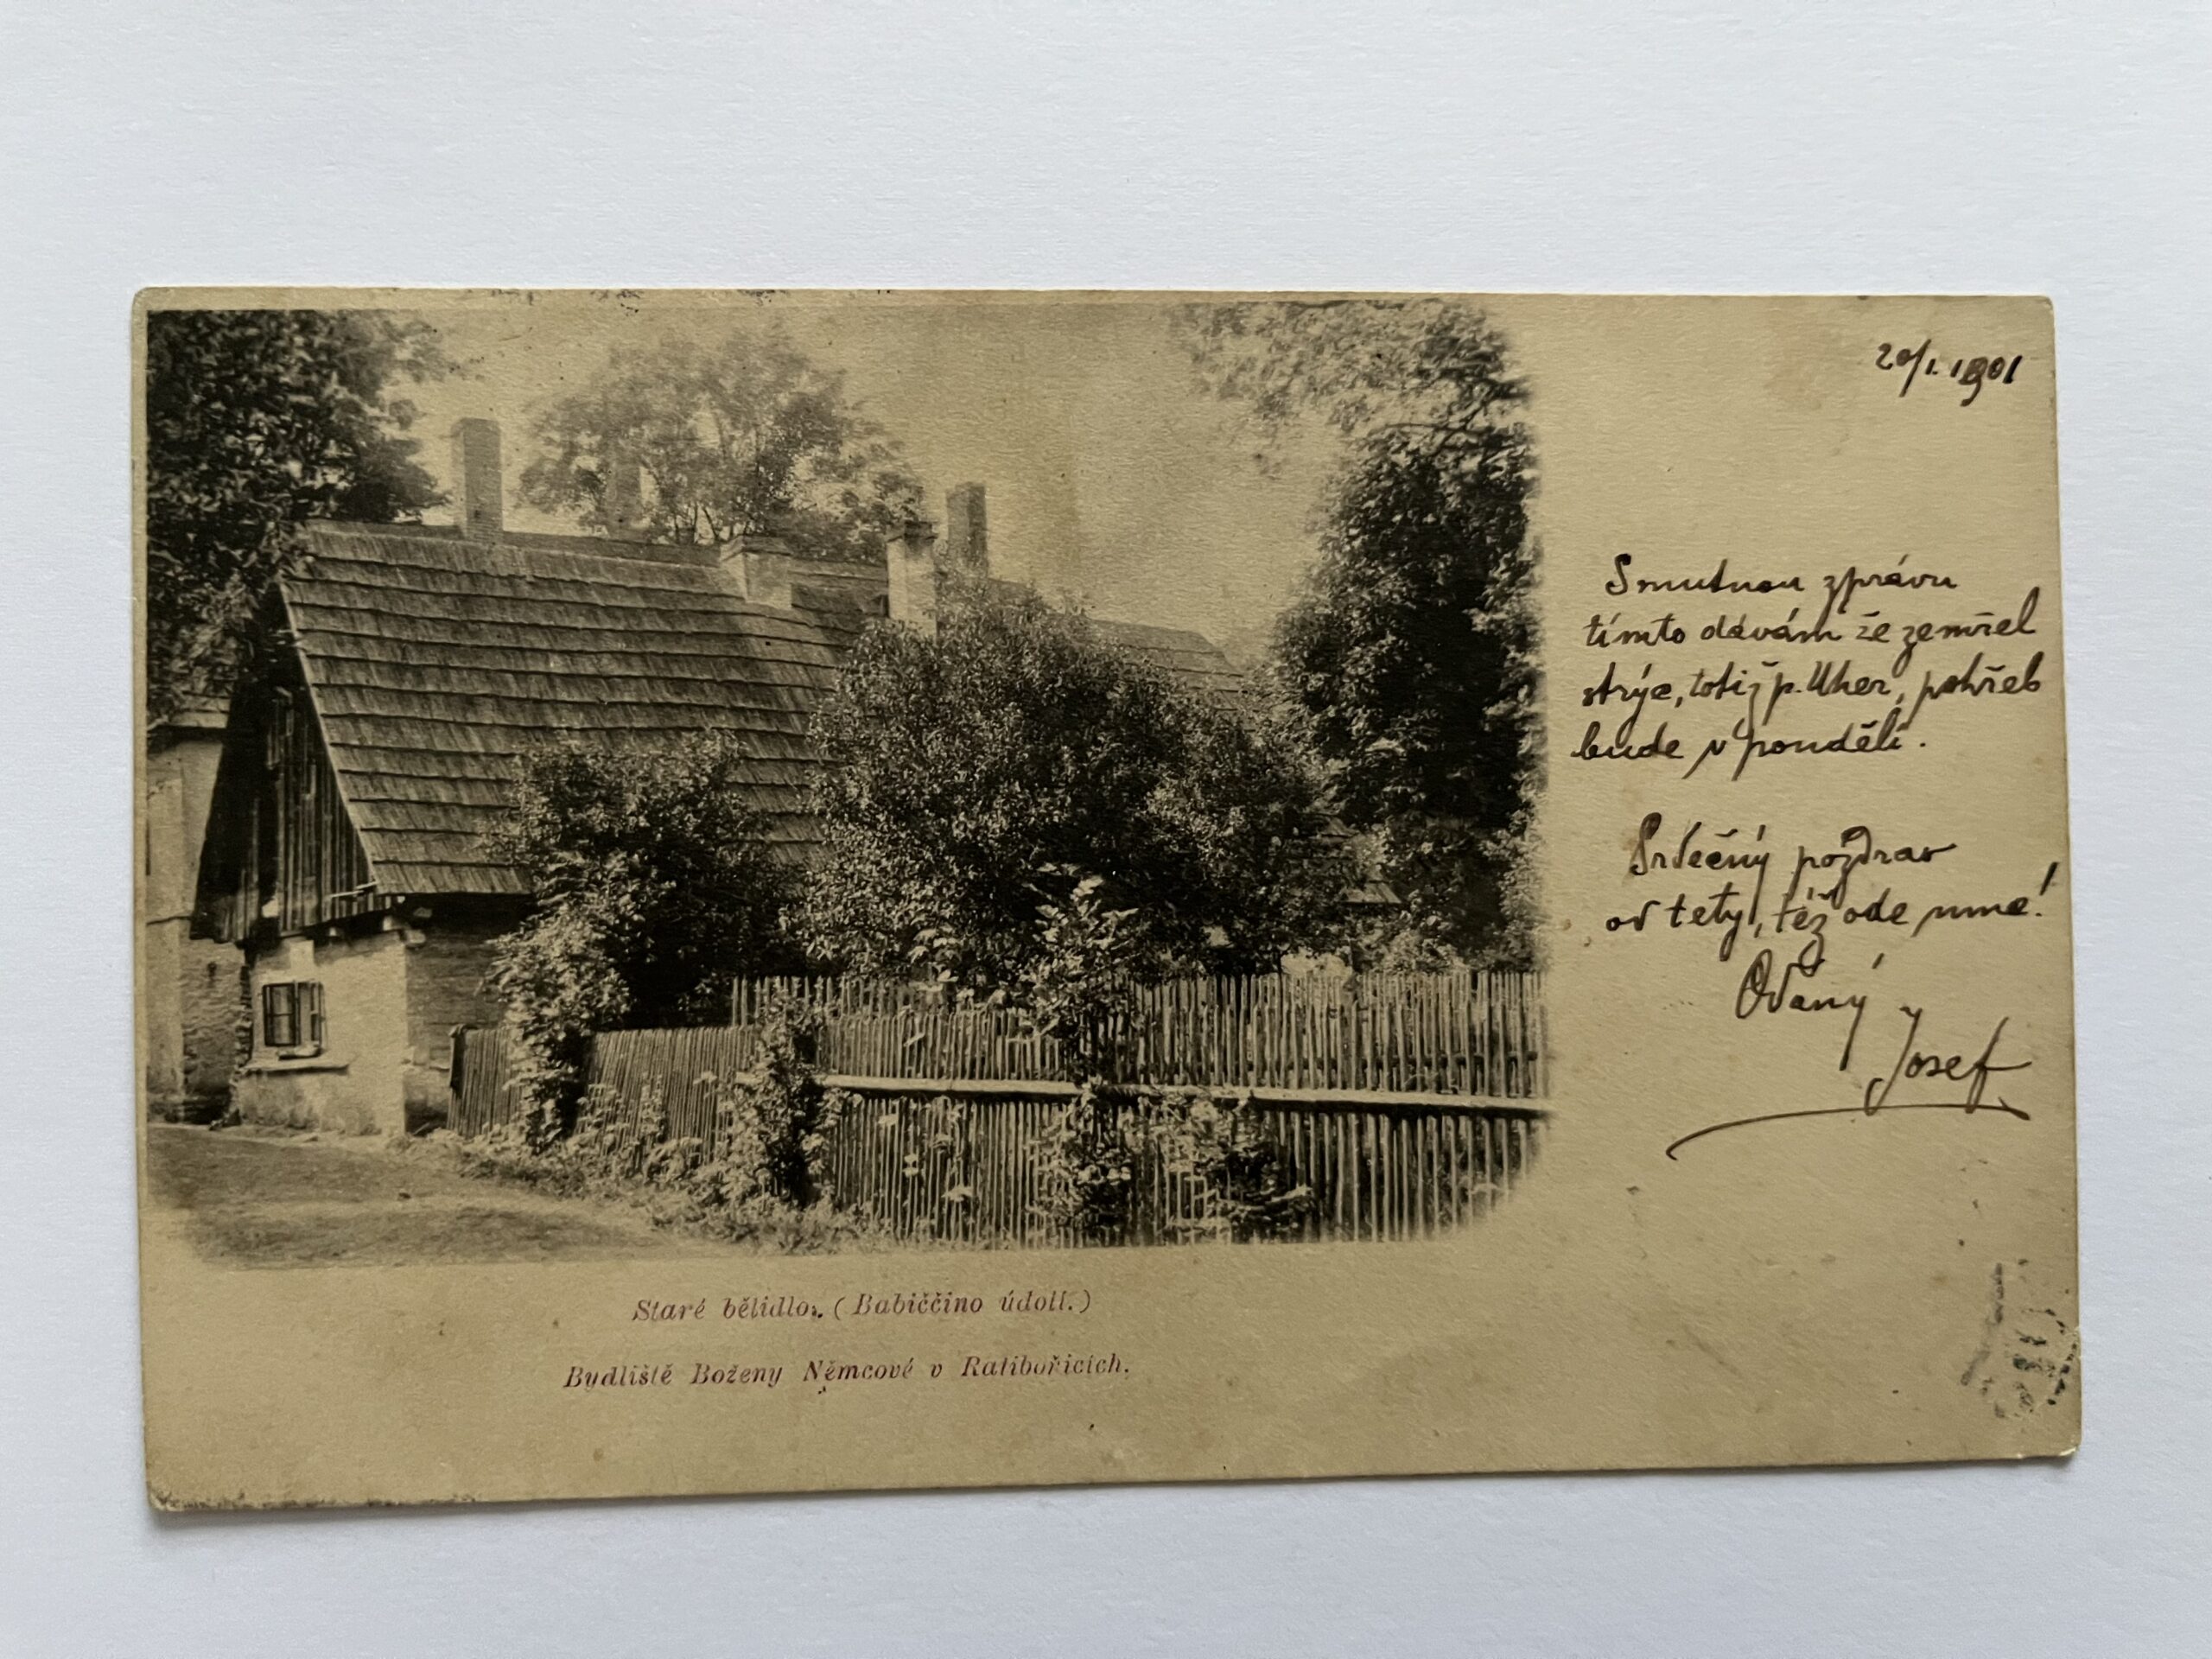 20/1. 1901
Smutnou zprávu
tímto dávám že zemřel
strýc, totiž p. Uher, pohřeb
bude v pondělí.
Srdečný pozdrav
od tety, též ode mne!
Oddaný
Josef
Staré bělidlo. (Babiččino údolí.)
Bydliště Boženy Němcové v Ratibořicích.